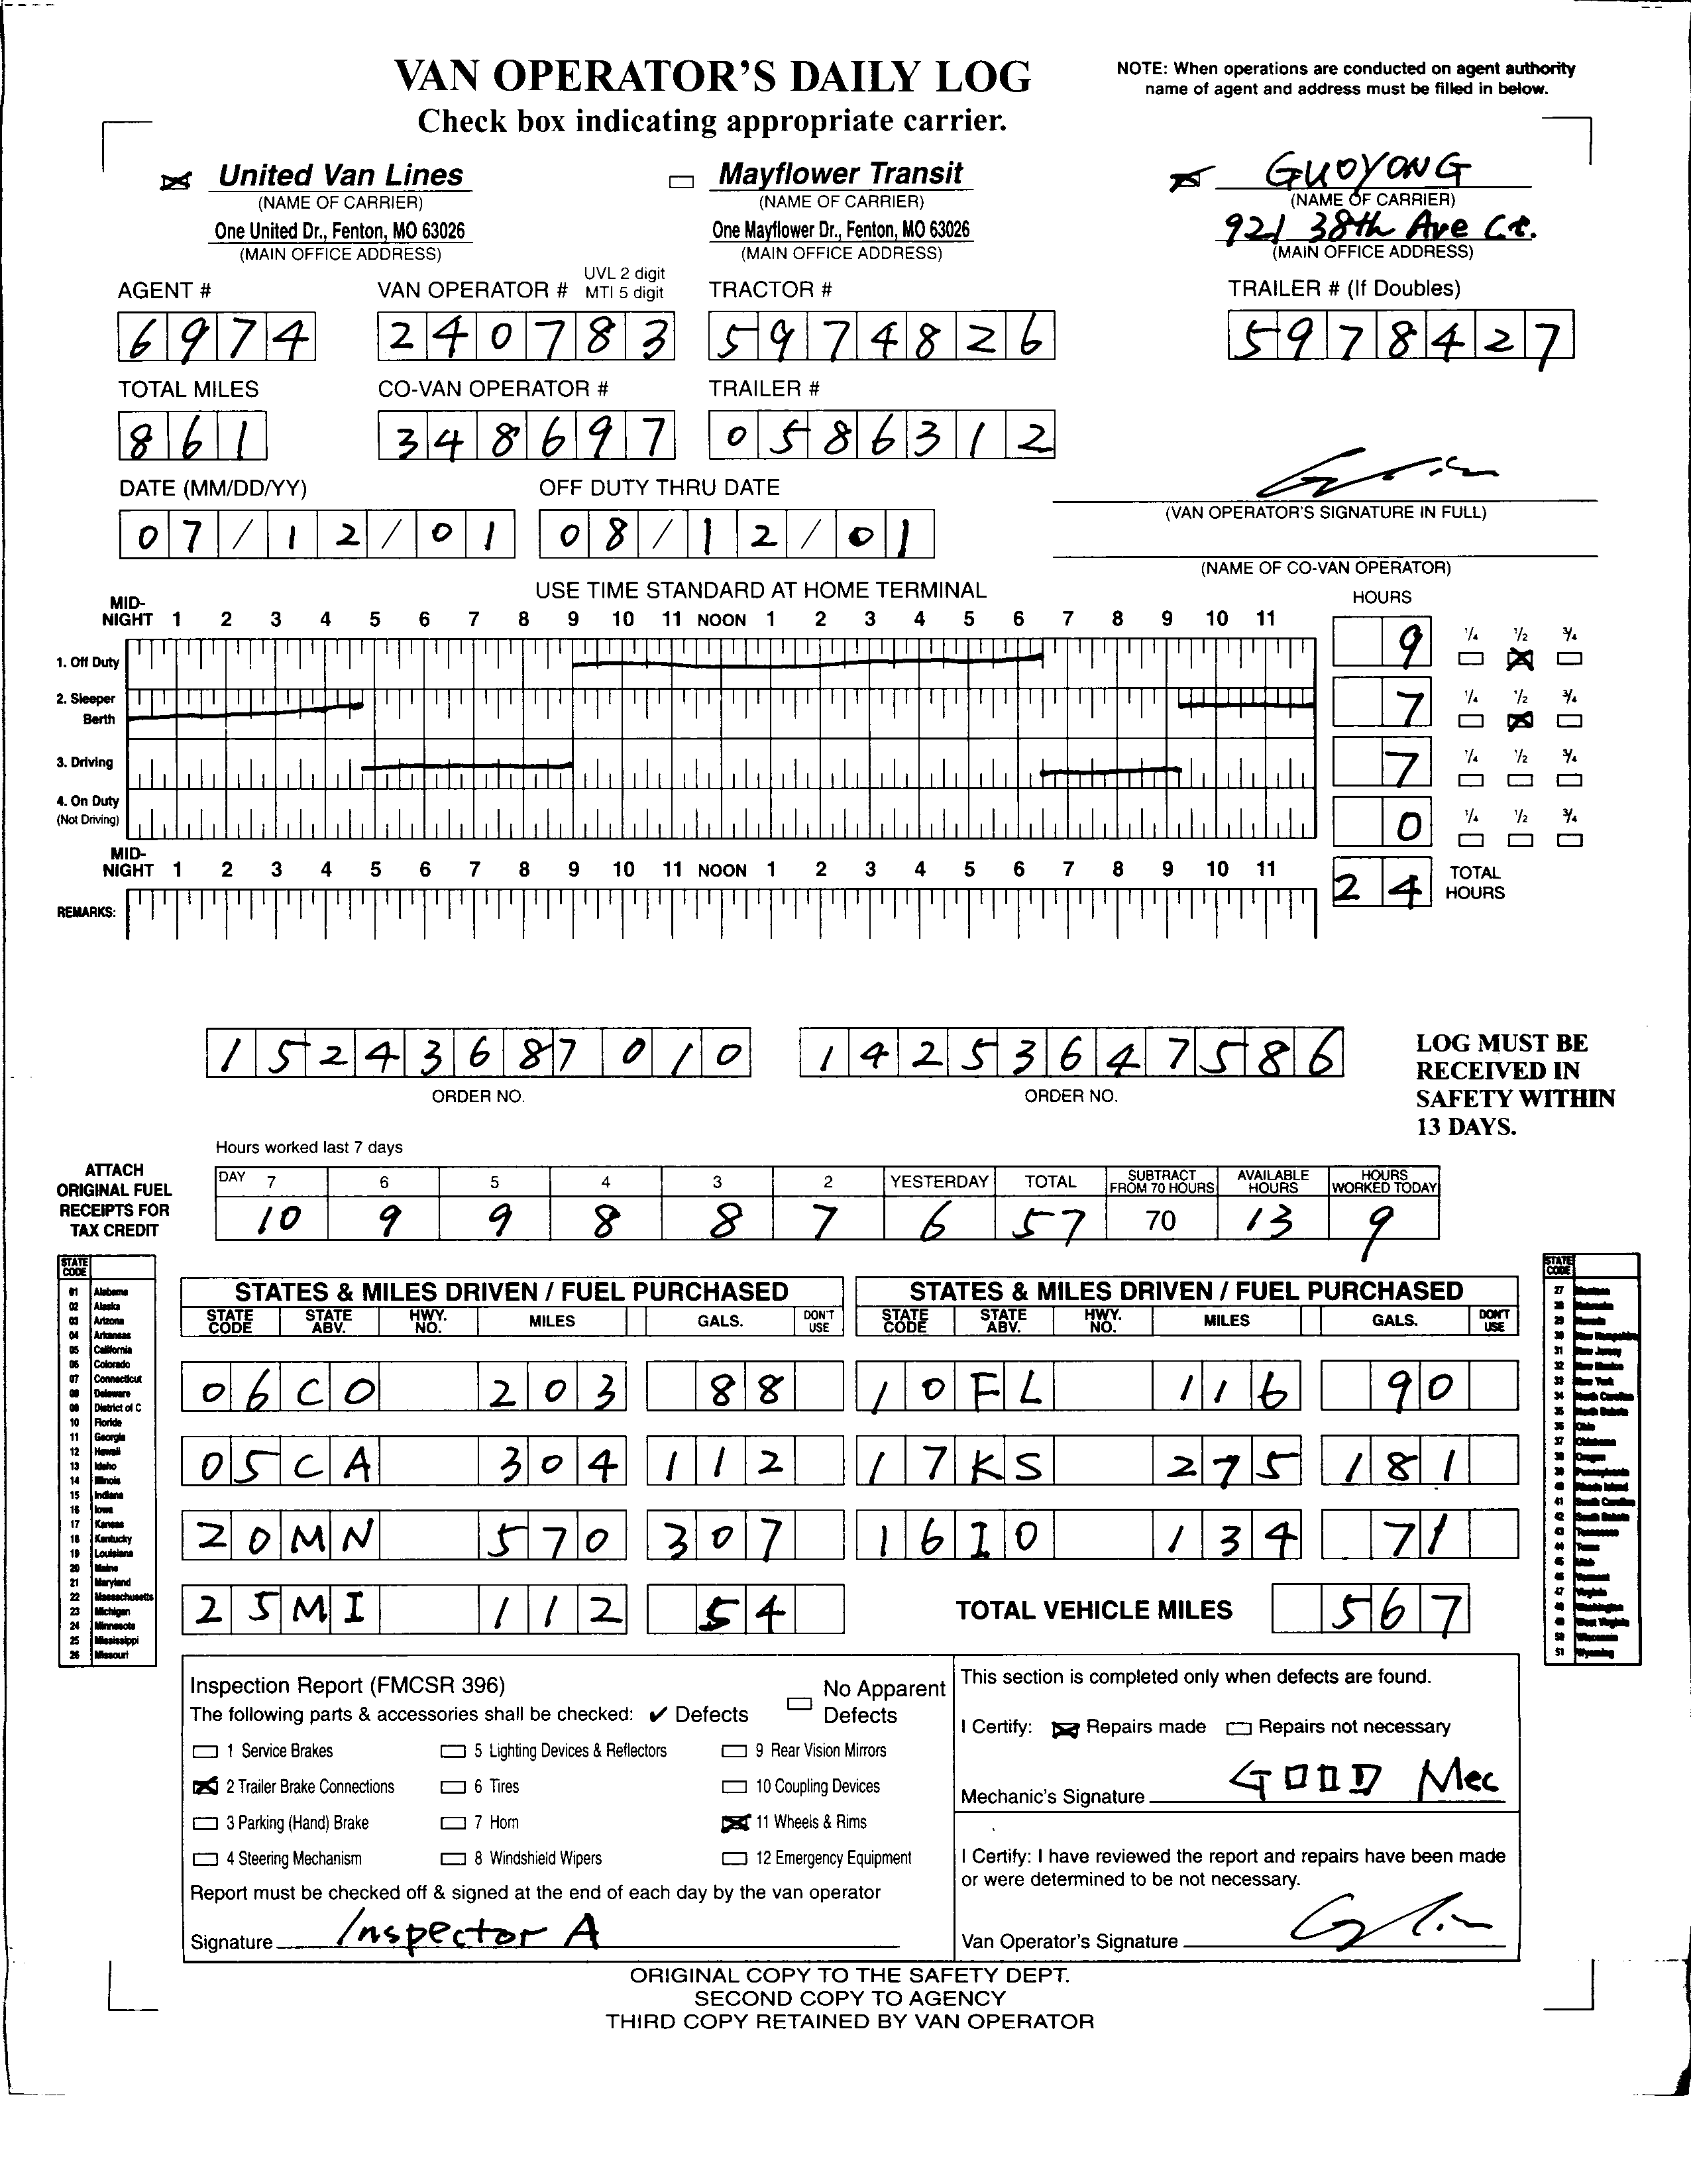 VAN OPERATOR'S DAILY LOG
Check box indicating appropriate carrier.
NOTE: When operations are conducted on agent authority
name of agent and address must be filled in below.
United Van Lines
(NAME OF CARRIER)
One United Dr., Fenton, MO 63026
(MAIN OFFICE ADDRESS)
Mayflower Transit
(NAME OF CARRIER)
One Mayflower Dr., Fenton, MO 63026
(MAIN OFFICE ADDRESS)
GUOYONG
(NAME OF CARRIER)
921 38th Ave Ct.
(MAIN OFFICE ADDRESS)
AGENT #
6974
VAN OPERATOR # UVL 2 digit MTI 5 digit
240783
TRACTOR #
5974826
TRAILER # (If Doubles)
5978427
TOTAL MILES
861
CO-VAN OPERATOR #
348697
TRAILER #
0586312
DATE (MM/DD/YY)
07/12/01
OFF DUTY THRU DATE
08/12/01
(VAN OPERATOR'S SIGNATURE IN FULL)
(NAME OF CO-VAN OPERATOR)
USE TIME STANDARD AT HOME TERMINAL
HOURS
MID-
NIGHT 1 2 3 4 5 6 7 8 9 10 11 NOON 1 2 3 4 5 6 7 8 9 10 11
1. Off Duty 9 1/4 1/2 3/4
2. Sleeper
Berth 7 1/4 1/2 3/4
3. Driving 7 1/4 1/2 3/4
4. On Duty
(Not Driving) 0 1/4 1/2 3/4
MID-
NIGHT 1 2 3 4 5 6 7 8 9 10 11 NOON 1 2 3 4 5 6 7 8 9 10 11
24 TOTAL
HOURS
REMARKS:
15243687010
ORDER NO.
14253647586
ORDER NO.
LOG MUST BE
RECEIVED IN
SAFETY WITHIN
13 DAYS.
Hours worked last 7 days
ATTACH
ORIGINAL FUEL
RECEIPTS FOR
TAX CREDIT
DAY 7 6 5 4 3 2 YESTERDAY TOTAL SUBTRACT FROM 70 HOURS AVAILABLE HOURS HOURS WORKED TODAY
10 9 9 8 8 7 6 57 70 13 9
STATE
CODE
01 Alabama
02 Alaska
03 Arizona
04 Arkansas
05 California
06 Colorado
07 Connecticut
08 Delaware
09 District of C
10 Floride
11 Georgia
12 Hawaii
13 Idaho
14 Illinois
15 Indiana
16 Iowa
17 Kansas
18 Kentucky
19 Louisiana
20 Maine
21 Maryland
22 Massachusetts
23 Michigan
24 Minnesota
25 Mississippi
26 Missouri
STATES & MILES DRIVEN / FUEL PURCHASED
STATE CODE STATE ABV. HWY. NO. MILES GALS. DON'T USE
06 CO 203 88
05 CA 304 112
20 MN 570 307
25 MI 112 54
STATES & MILES DRIVEN / FUEL PURCHASED
STATE CODE STATE ABV. HWY. NO. MILES GALS. DON'T USE
10 FL 116 90
17 KS 275 181
16 IO 134 71
TOTAL VEHICLE MILES 567
STATE
CODE
27 Montana
28 Nebraska
29 Nevada
30 New Hampshire
31 New Jersey
32 New Mexico
33 New York
34 North Carolina
35 North Dakota
36 Ohio
37 Oklahoma
38 Oregon
39 Pennsylvania
40 Rhode Island
41 South Carolina
42 South Dakota
43 Tennessee
44 Texas
45 Utah
46 Vermont
47 Virginia
48 Washington
49 West Virginia
50 Wisconsin
51 Wyoming
Inspection Report (FMCSR 396)
The following parts & accessories shall be checked: ✔ Defects
No Apparent
Defects
1 Service Brakes
5 Lighting Devices & Reflectors
9 Rear Vision Mirrors
2 Trailer Brake Connections
6 Tires
10 Coupling Devices
3 Parking (Hand) Brake
7 Horn
11 Wheels & Rims
4 Steering Mechanism
8 Windshield Wipers
12 Emergency Equipment
Report must be checked off & signed at the end of each day by the van operator
Signature Inspector A
This section is completed only when defects are found.
I Certify: Repairs made Repairs not necessary
Mechanic's Signature GOOD Mec
I Certify: I have reviewed the report and repairs have been made
or were determined to be not necessary.
Van Operator's Signature
ORIGINAL COPY TO THE SAFETY DEPT.
SECOND COPY TO AGENCY
THIRD COPY RETAINED BY VAN OPERATOR